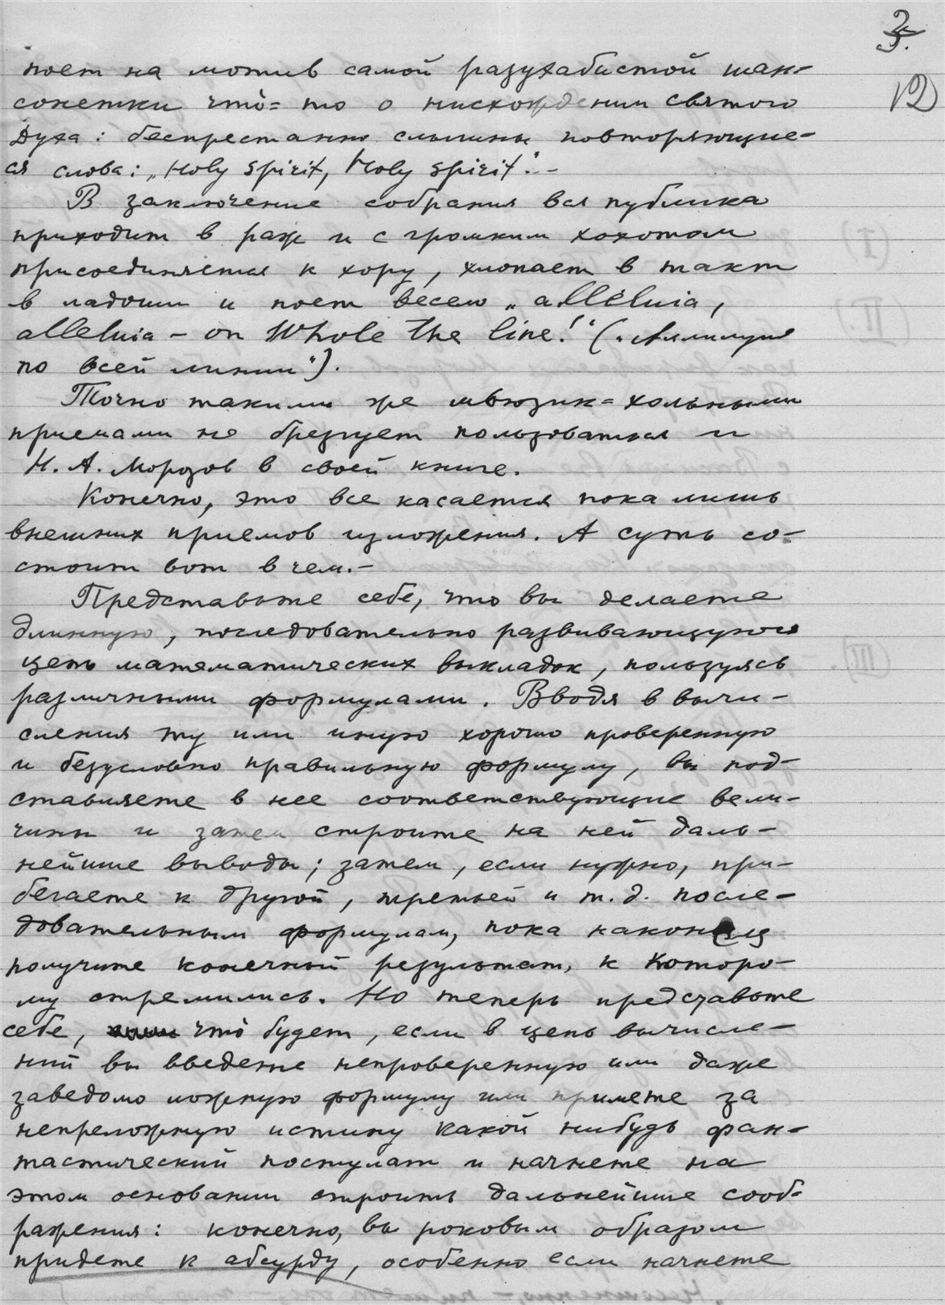 3.
12
поет на мотив самой разухабистой шан-
сонетки что-то о нисхождении святого
Духа: беспрестанно слышны повторяющие-
ся слова: „Holy spirit, Holy spirit".-
В заключение собрания вся публика
приходит в раж и с громким хохотом
присоединяется к хору, хлопает в такт
в ладоши и поет весело „alléluia,
alleluia - on Whole the line!" („Аллилуя
по всей линии").
Точно такими же мюзик-хольными
приемами не брезгует пользоваться и
Н. А. Морозов в своей книге.
Конечно, это все касается пока лишь
внешних приемов изложения. А суть со-
стоит вот в чем.-
Представьте себе, что вы делаете
длинную, последовательно развивающуюся
цепь математических выкладок, пользуясь
различными формулами. Вводя в вычи-
сления ту или иную хорошо проверенную
и безусловно правильную формулу, вы под-
ставляете в нее соответствующие вели-
чины и затем строите на ней даль-
нейшие выводы; затем, если нужно, при-
бегаете к другой, третьей и т. д. после-
довательным формулам, пока наконец
получите конечный результат, к которо-
му стремились. Но теперь представьте
себе, что будет, если в цепь вычисле-
ний вы введете непроверенную или даже
заведомо ложную формулу или примете за
непреложную истину какой нибудь фан-
тастический постулат и начнете на
этом основании строить дальнейшие сооб-
ражения: конечно, вы роковым образом
придете к абсурду, особенно если начнете